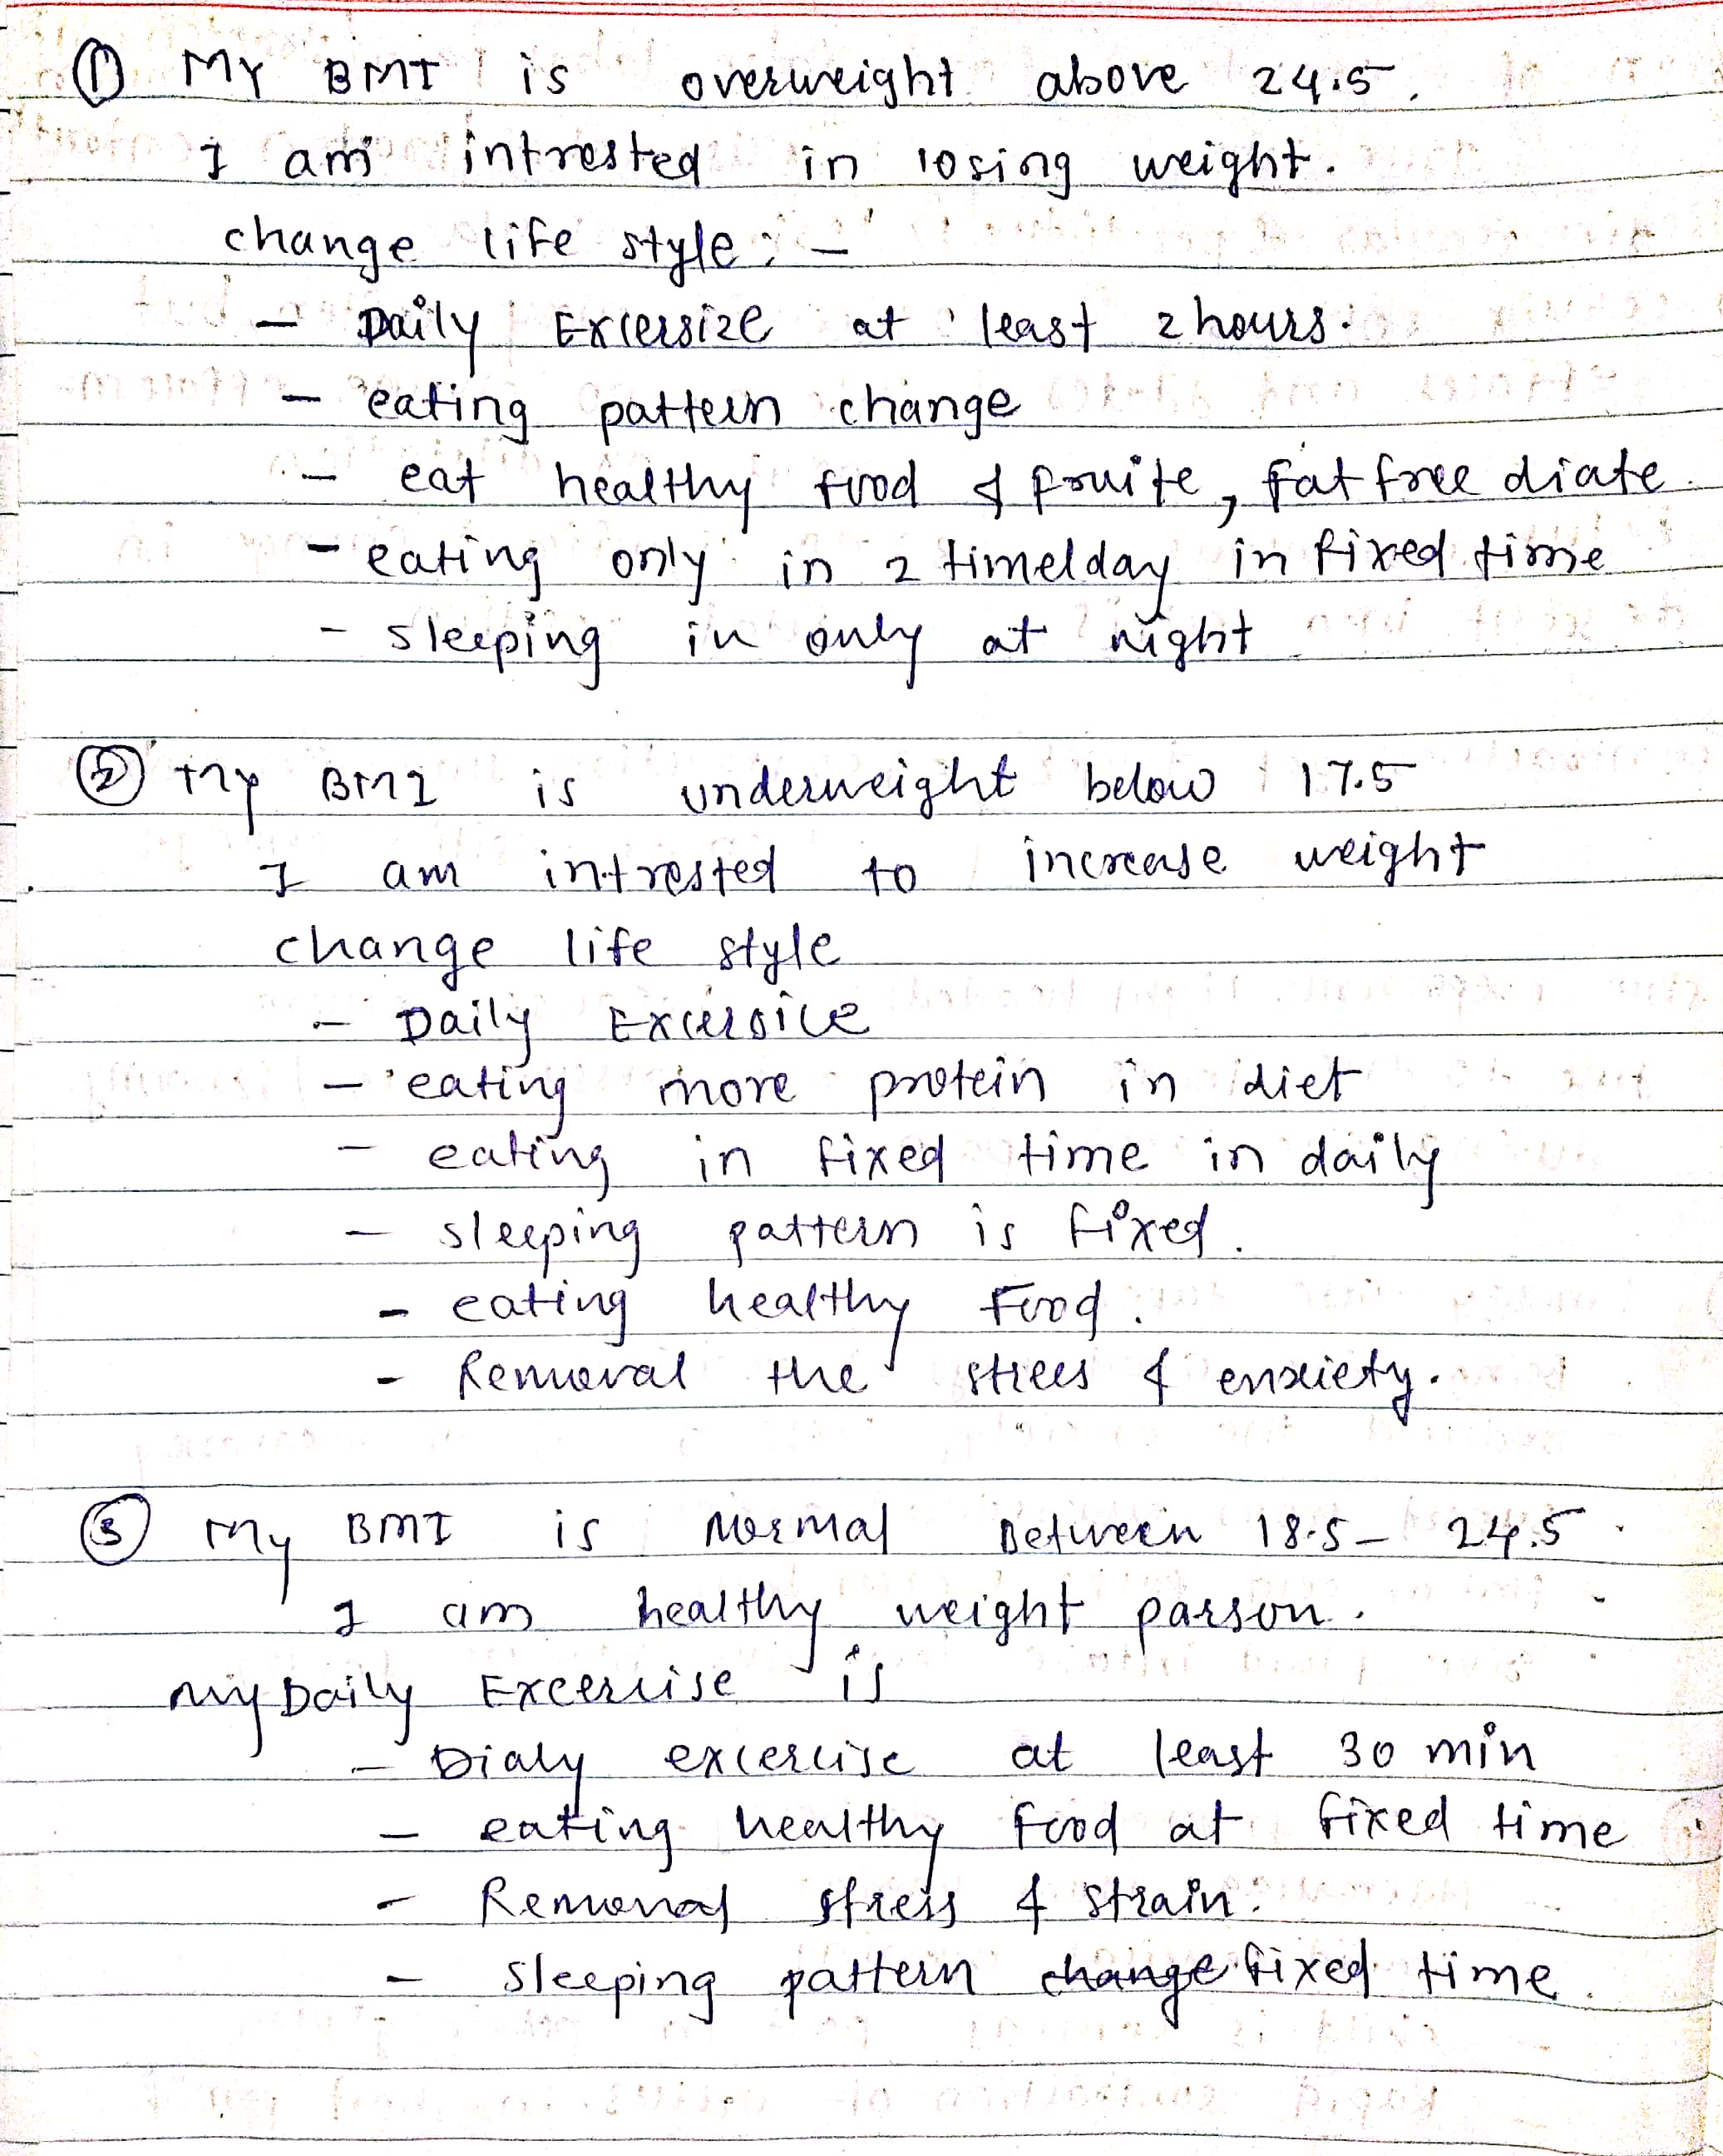 ① MY BMI is overweight above 24.5.
I am intrested in losing weight.
change life style : –
– Daily Excersize at least 2 hours.
– eating pattern change
– eat healthy food & fruite, fat free diate.
– eating only in 2 time/day in fixed time
– sleeping in only at night
② My BMI is underweight below 17.5
I am intrested to increase weight
change life style
– Daily Excersice
– eating more protein in diet
– eating in fixed time in daily
– sleeping pattern is fixed.
– eating healthy Food.
– Removal the strees & enxiety.
③ My BMI is Normal Between 18.5 – 24.5.
I am healthy weight parson.
my Daily Excercise is
– Dialy excercise at least 30 min
– eating healthy food at fixed time
– Removal stress & strain.
– sleeping pattern change fixed time.